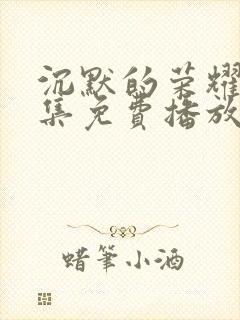 沉默的荣耀
集免費播放
蜡筆小酒